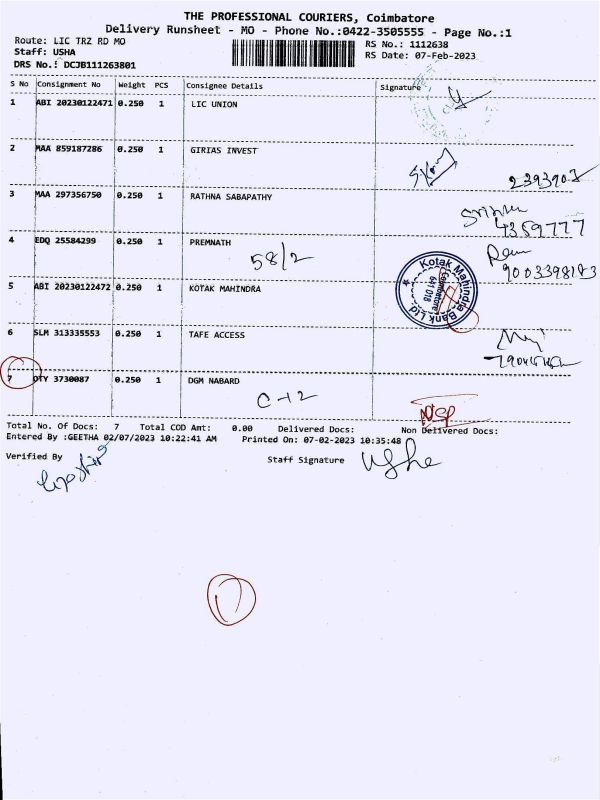 THE PROFESSIONAL COURIERS, Coimbatore
Delivery Runsheet - MO - Phone No.:0422-3505555 - Page No.:1
Route: LIC TRZ RD MO
Staff: USHA
DRS No.: DCJB111263801
RS No.: 1112638
RS Date: 07-Feb-2023
S No Consignment No Weight PCS Consignee Details Signature
1 ABI 20230122471 0.250 1 LIC UNION
2 MAA 859187286 0.250 1 GIRIAS INVEST
2393903
3 MAA 297356750 0.250 1 RATHNA SABAPATHY
4359777
4 EDQ 25584299 0.250 1 PREMNATH
58/2
9003398183
5 ABI 20230122472 0.250 1 KOTAK MAHINDRA
Kotak Mahindra Bank Ltd
Coimbatore
641 018
6 SLM 313335553 0.250 1 TAFE ACCESS
7 DTY 3730087 0.250 1 DGM NABARD
C-12
Total No. Of Docs: 7 Total COD Amt: 0.00 Delivered Docs: Non Delivered Docs:
Entered By :GEETHA 02/07/2023 10:22:41 AM Printed On: 07-02-2023 10:35:48
Verified By
Staff Signature Usha